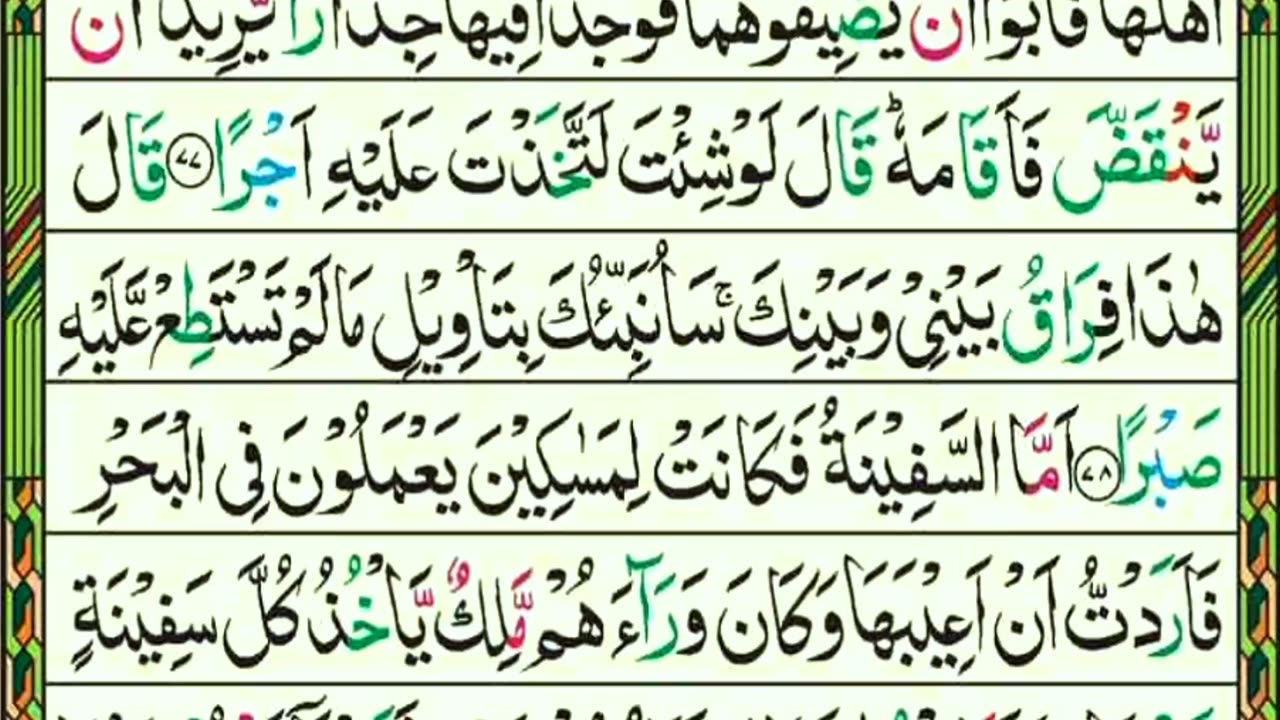 اَهْلَهَا فَاَبَوْا اَنْ يُّضَيِّفُوْهُمَا فَوَجَدَا فِيْهَا جِدَارًا يُّرِيْدُ اَنْ
يَّنْقَضَّ فَاَقَامَهٗ ؕ قَالَ لَوْ شِئْتَ لَتَّخَذْتَ عَلَيْهِ اَجْرًا ﴿۷۷﴾ قَالَ
هٰذَا فِرَاقُ بَيْنِيْ وَبَيْنِكَ ۚ سَاُنَبِّئُكَ بِتَاْوِيْلِ مَا لَمْ تَسْتَطِعْ عَّلَيْهِ
صَبْرًا ﴿۷۸﴾ اَمَّا السَّفِيْنَةُ فَكَانَتْ لِمَسٰكِيْنَ يَعْمَلُوْنَ فِي الْبَحْرِ
فَاَرَدْتُّ اَنْ اَعِيْبَهَا وَكَانَ وَرَآءَهُمْ مَّلِكٌ يَّاْخُذُ كُلَّ سَفِيْنَةٍ